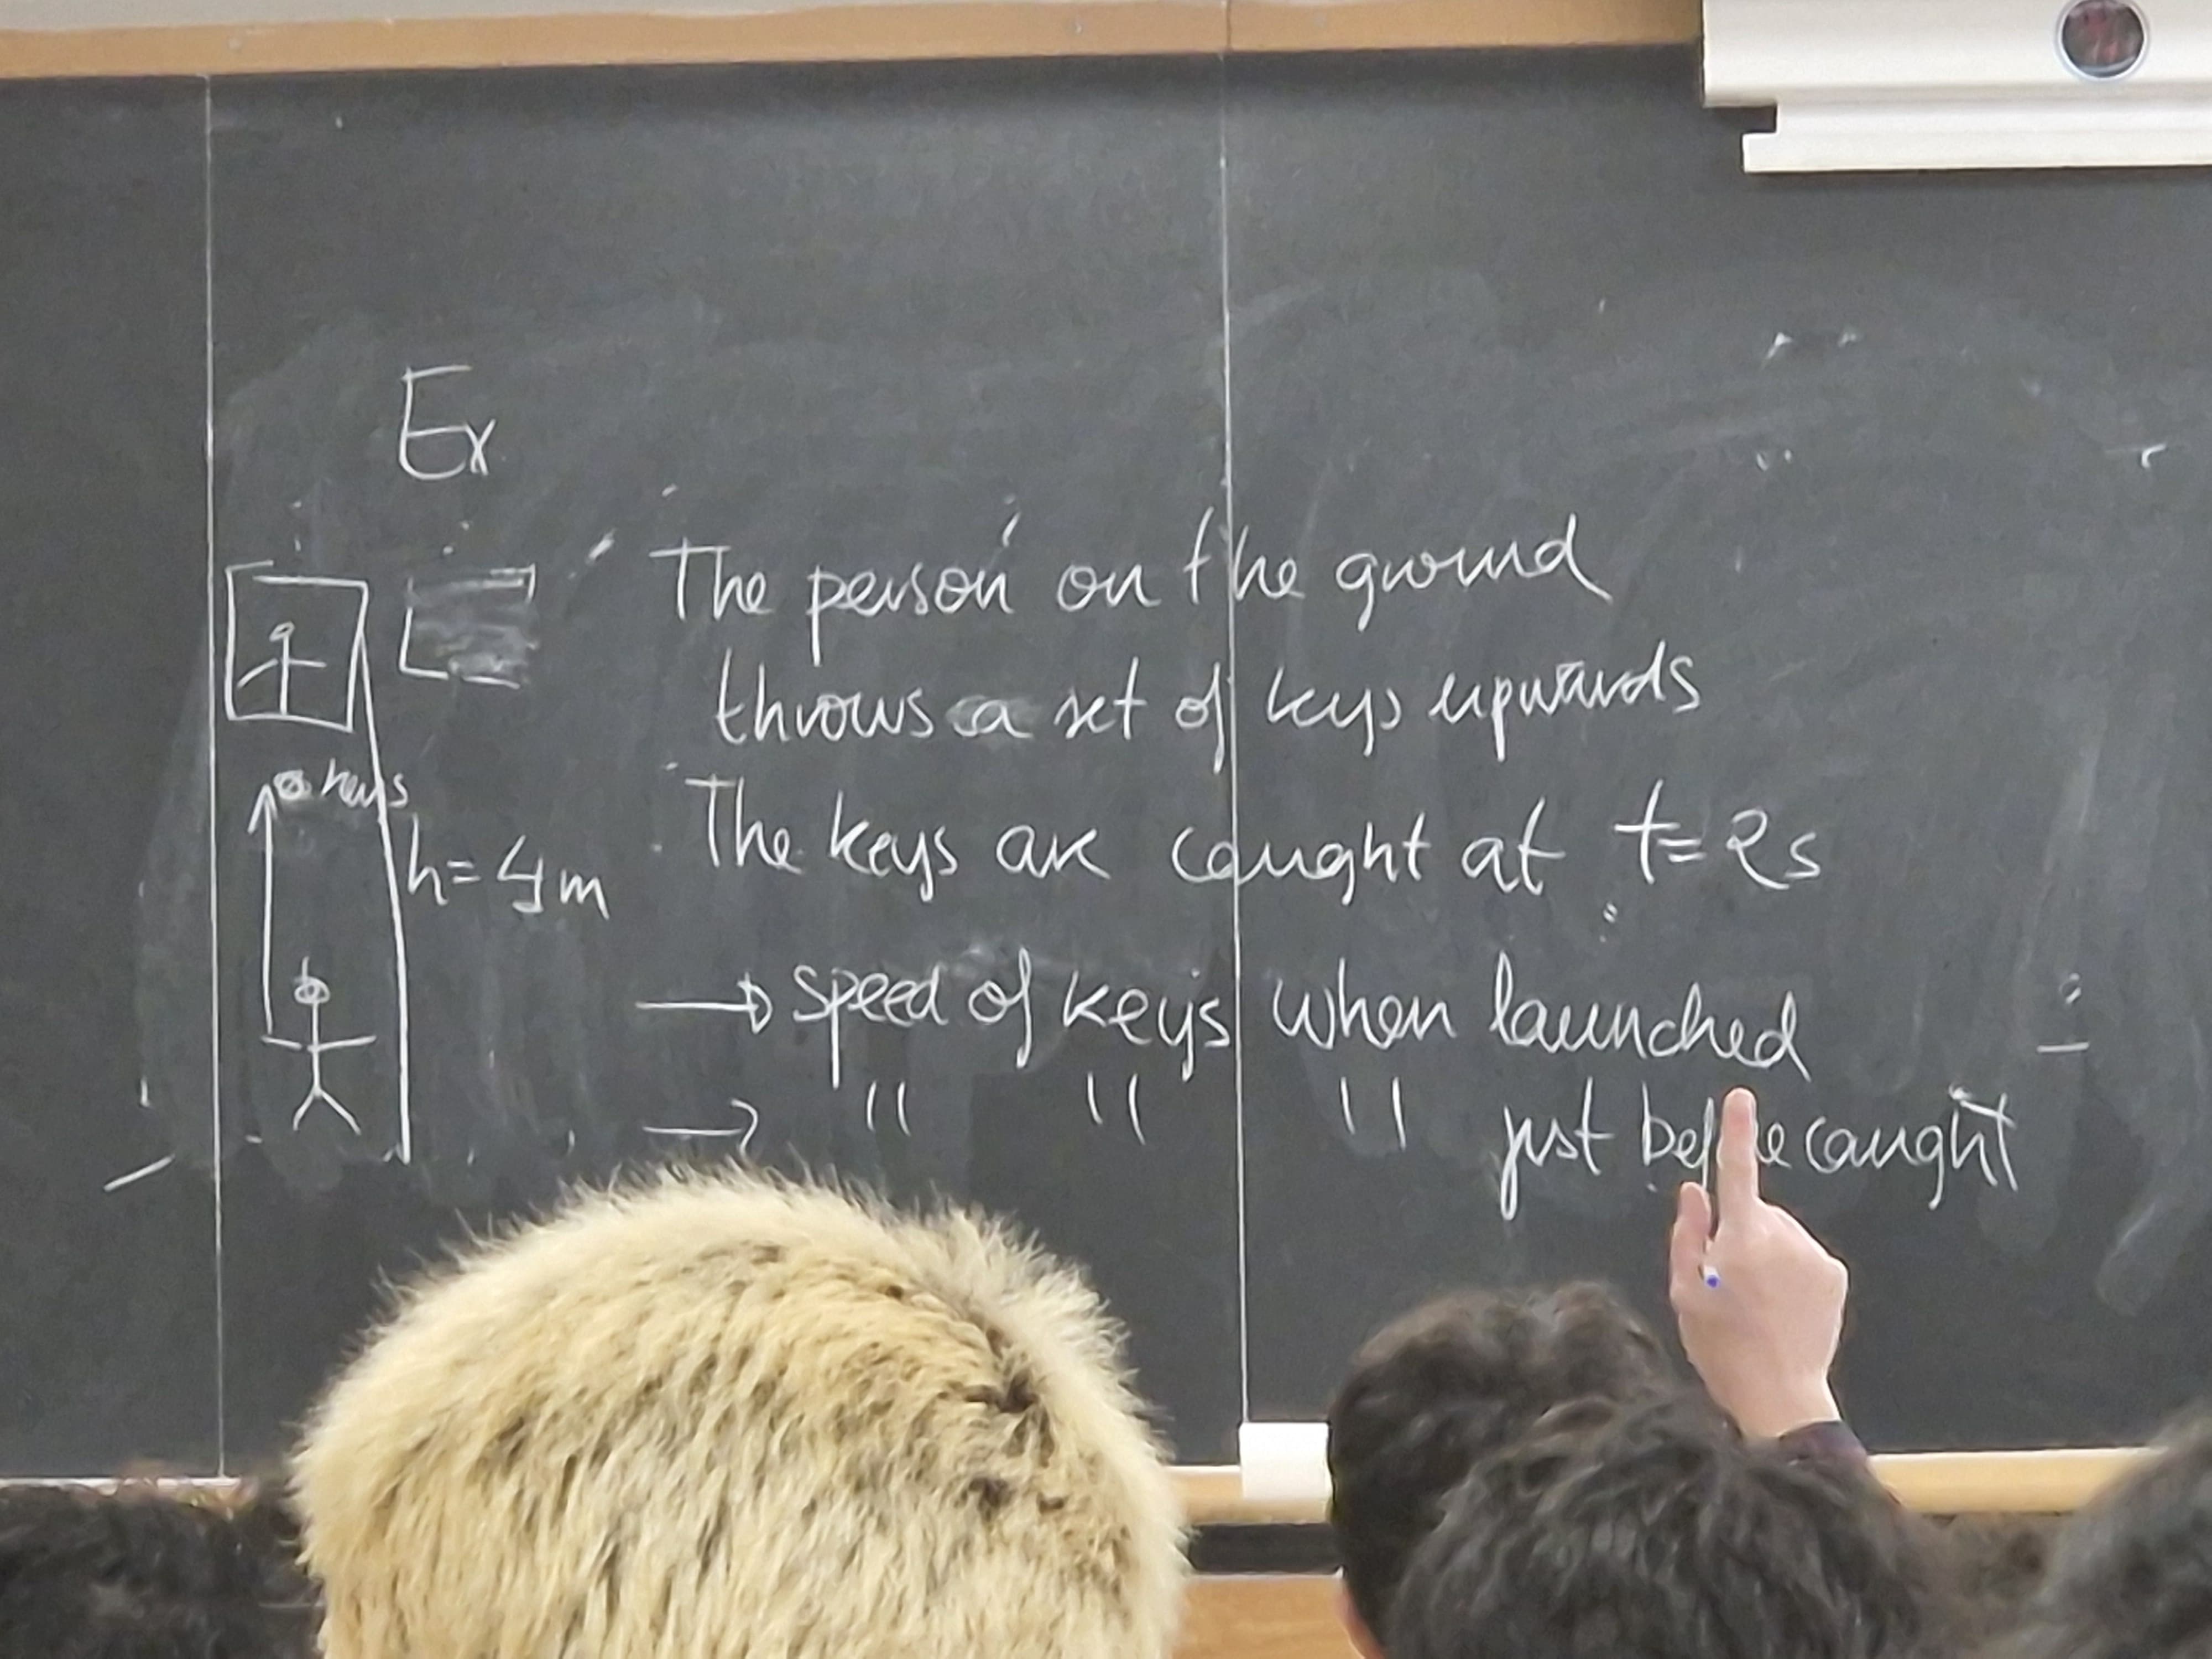 Ex
The person on the ground
throws a set of keys upwards
keys
The keys are caught at t = 2s
h = 4m
→ speed of keys when launched
→ " " " just before caught